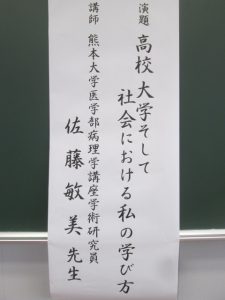 演題 高校 大学そして
社会における私の学び方
講師 熊本大学医学部病理学講座学術研究員
佐藤敏美先生